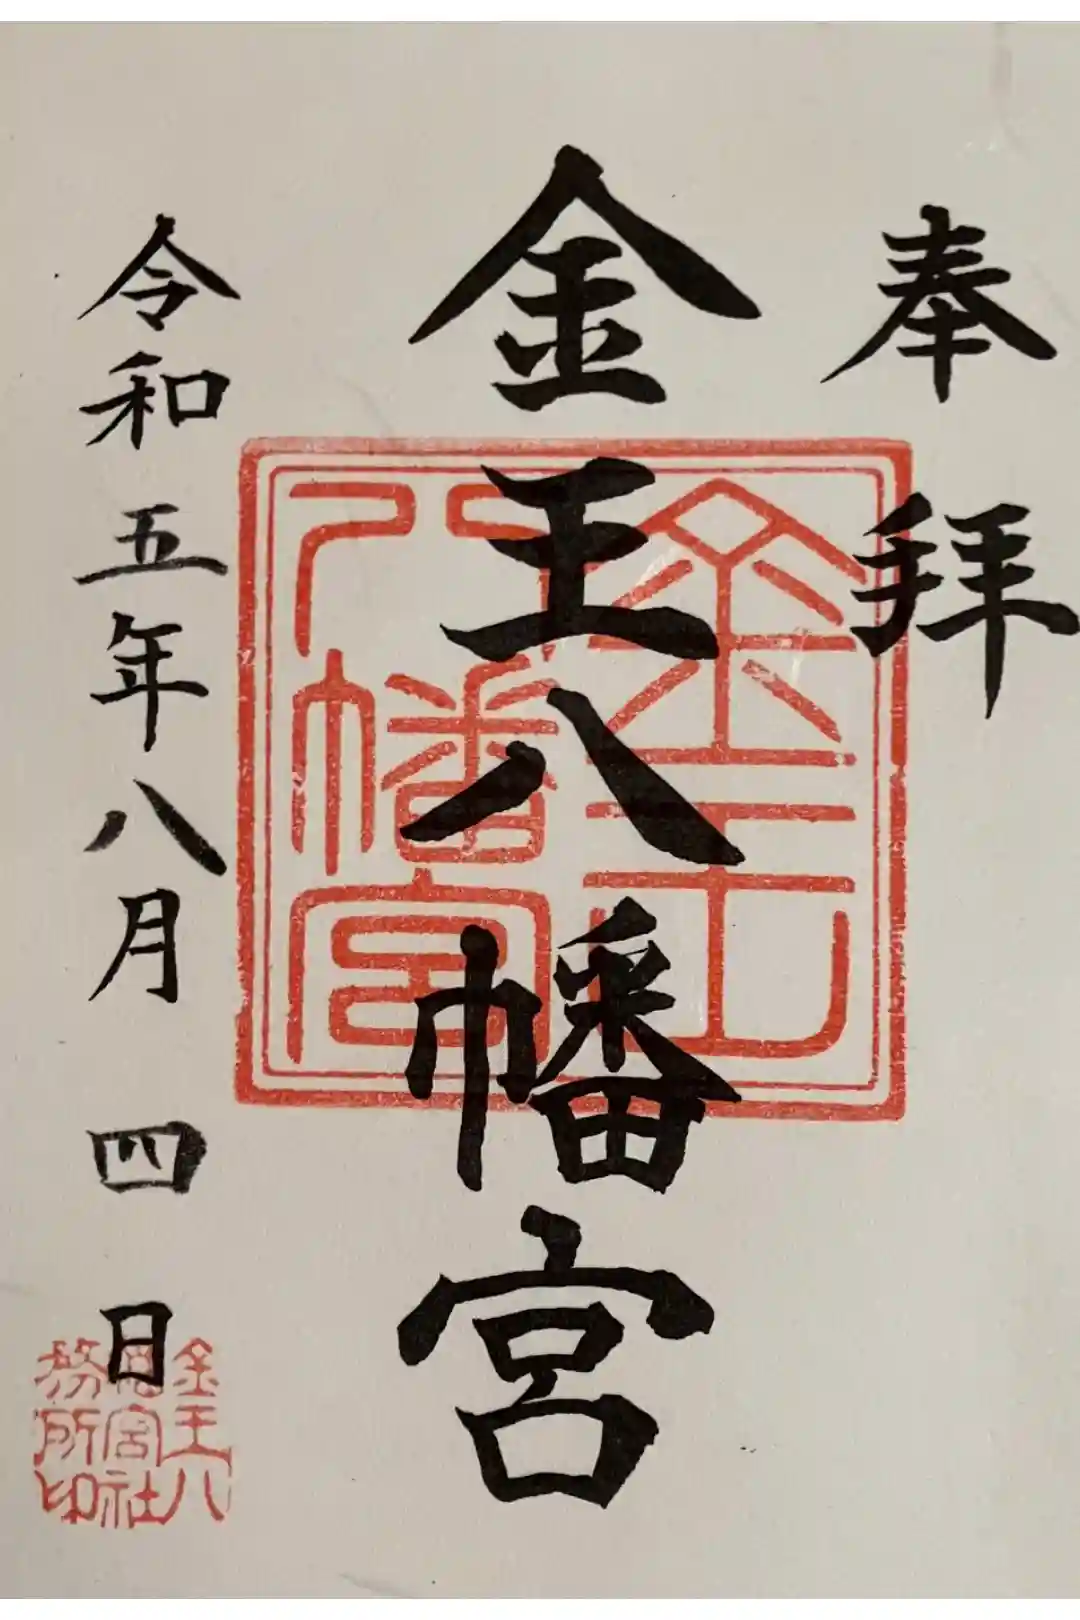 奉拝
金王八幡宮
金王八幡宮
令和五年八月四日
金王八
幡宮社
務所印